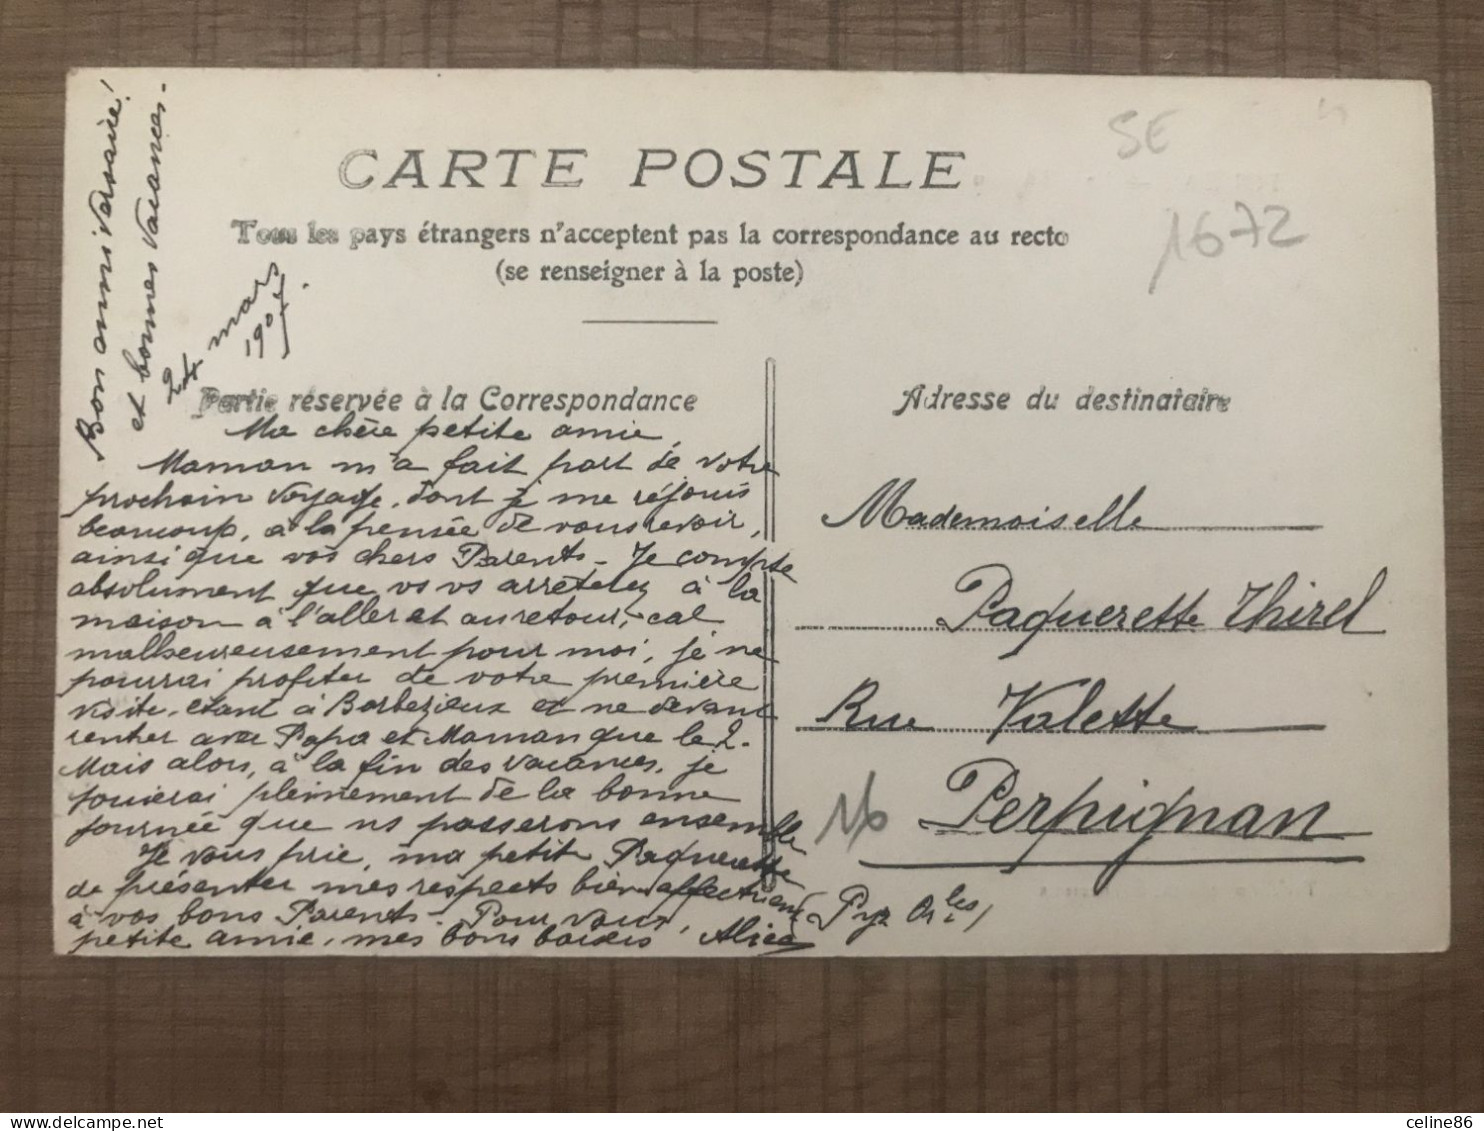 Bon anniversaire!
et bonnes vacances-
24 mars
SE
1672
CARTE POSTALE
Tous les pays étrangers n'acceptent pas la correspondance au recto
(se renseigner à la poste)
Partie réservée à la Correspondance
Ma chère petite amie,
Maman m'a fait part de votre
prochain voyage, dont je me réjouis
beaucoup, à la pensée de vous revoir,
ainsi que vos chers Parents - Je compte
absolument que vs vs arrêterez à la
maison à l'aller et au retour, cal
malheureusement pour moi, je ne
pourrai profiter de votre première
visite, étant à Barbezieux et ne devant
rentrer avec Papa et Maman que le 2.
Mais alors, à la fin des vacances, je
jouierai pleinement de la bonne
journée que ns passerons ensemble
Je vous prie, ma petite Paquerette
de présenter mes respects bien affectueux
à vos bons Parents - Pour vous,
petite amie, mes bons baisers Alice
Adresse du destinataire
Mademoiselle
Paquerette Thirel
Rue Valette
16
Perpignan
Pyr Or.les
celine86